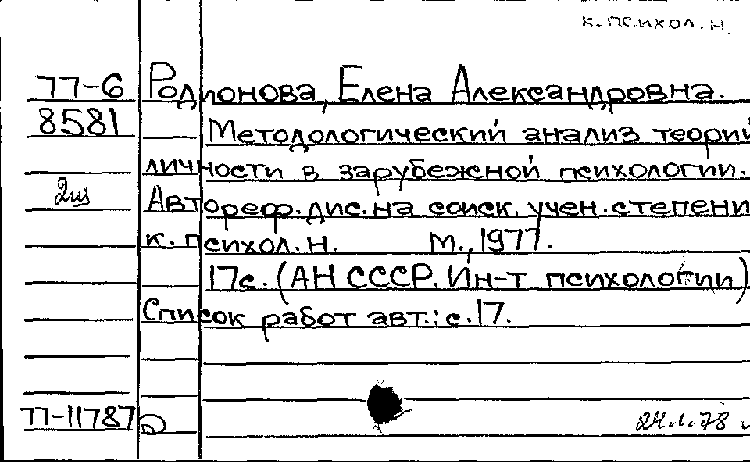 к. психол. н.
77-6 Родионова, Елена Александровна.
8581 Методологический анализ теорий
личности в зарубежной психологии.
Автореф. дис. на соиск. учен. степени
к. психол. н. М., 1977.
17с. (АН СССР. Ин-т психологии)
Список работ авт.: с. 17.
77-11787
24.1.78